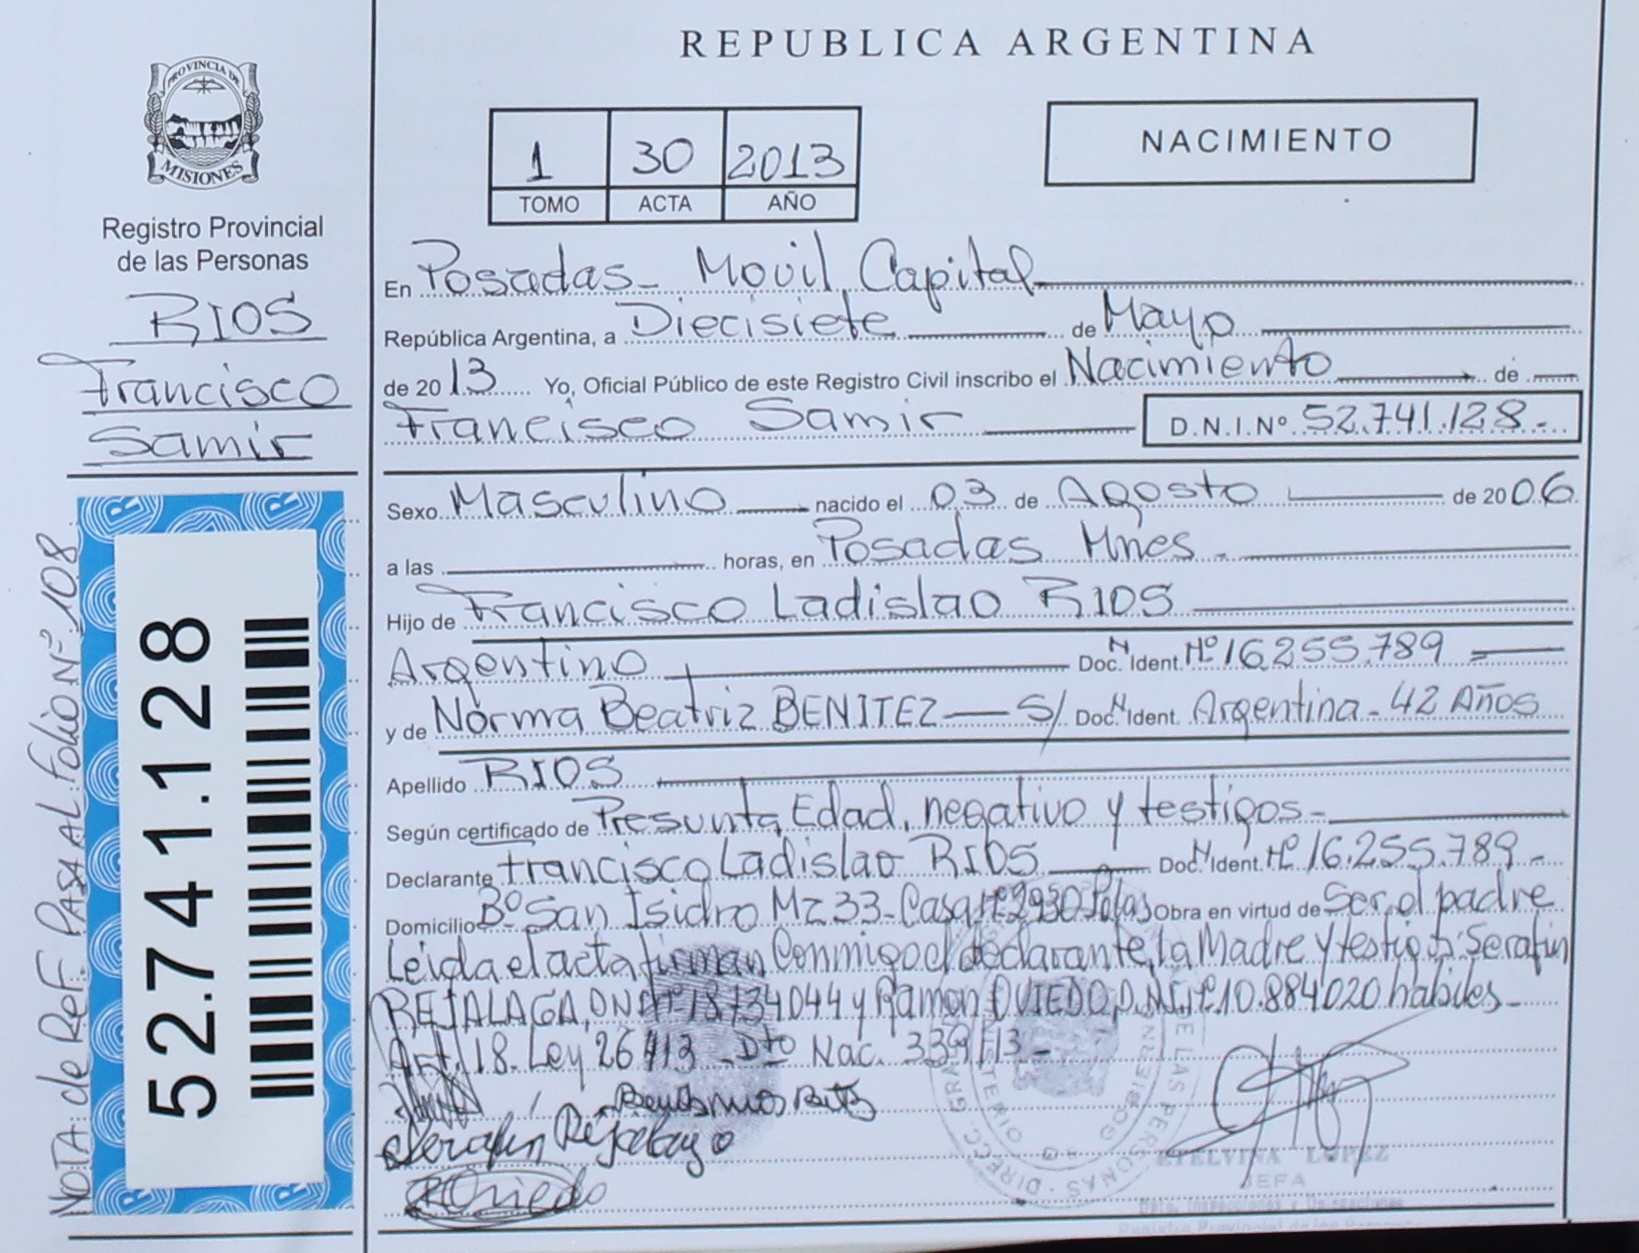 REPUBLICA ARGENTINA
PROVINCIA DE
MISIONES
Registro Provincial
de las Personas
RIOS
Francisco
Samir
NOTA: de Ref. PASA AL Folio Nº 108
52.741.128
1 30 2013
TOMO ACTA AÑO
NACIMIENTO
En Posadas - Movil Capital
República Argentina, a Diecisiete de Mayo
de 2013 Yo, Oficial Público de este Registro Civil inscribo el Nacimiento de
Francisco Samir D.N.I.Nº 52.741.128.-
Sexo Masculino nacido el 03 de Agosto de 2006
a las horas, en Posadas Mnes.
Hijo de Francisco Ladislao RIOS
Argentino Doc. N Ident. Nº 16.255.789
y de Norma Beatriz BENITEZ S/ Doc. N Ident. Argentina - 42 Años
Apellido RIOS
Según certificado de Presunta Edad, negativo y testigos-
Declarante Francisco Ladislao RIOS Doc. N Ident. Nº 16.255.789-
Domicilio Bº San Isidro Mz 33 - Casa Nº 2930 Pdas Obra en virtud de Ser el padre
Leida el acta firman Conmigo el declarante, la Madre y testigos: Serafin
REJALAGA, DNI Nº 18.734044 y Ramon OVIEDO, D.N.I. Nº 10.884020 habiles-
Art. 18. Ley 26413 - Dto Nac. 339/13-
Serafin Rejalaga
ROviedo
ETELVINA LOPEZ
JEFA
Registro Provincial de las Personas